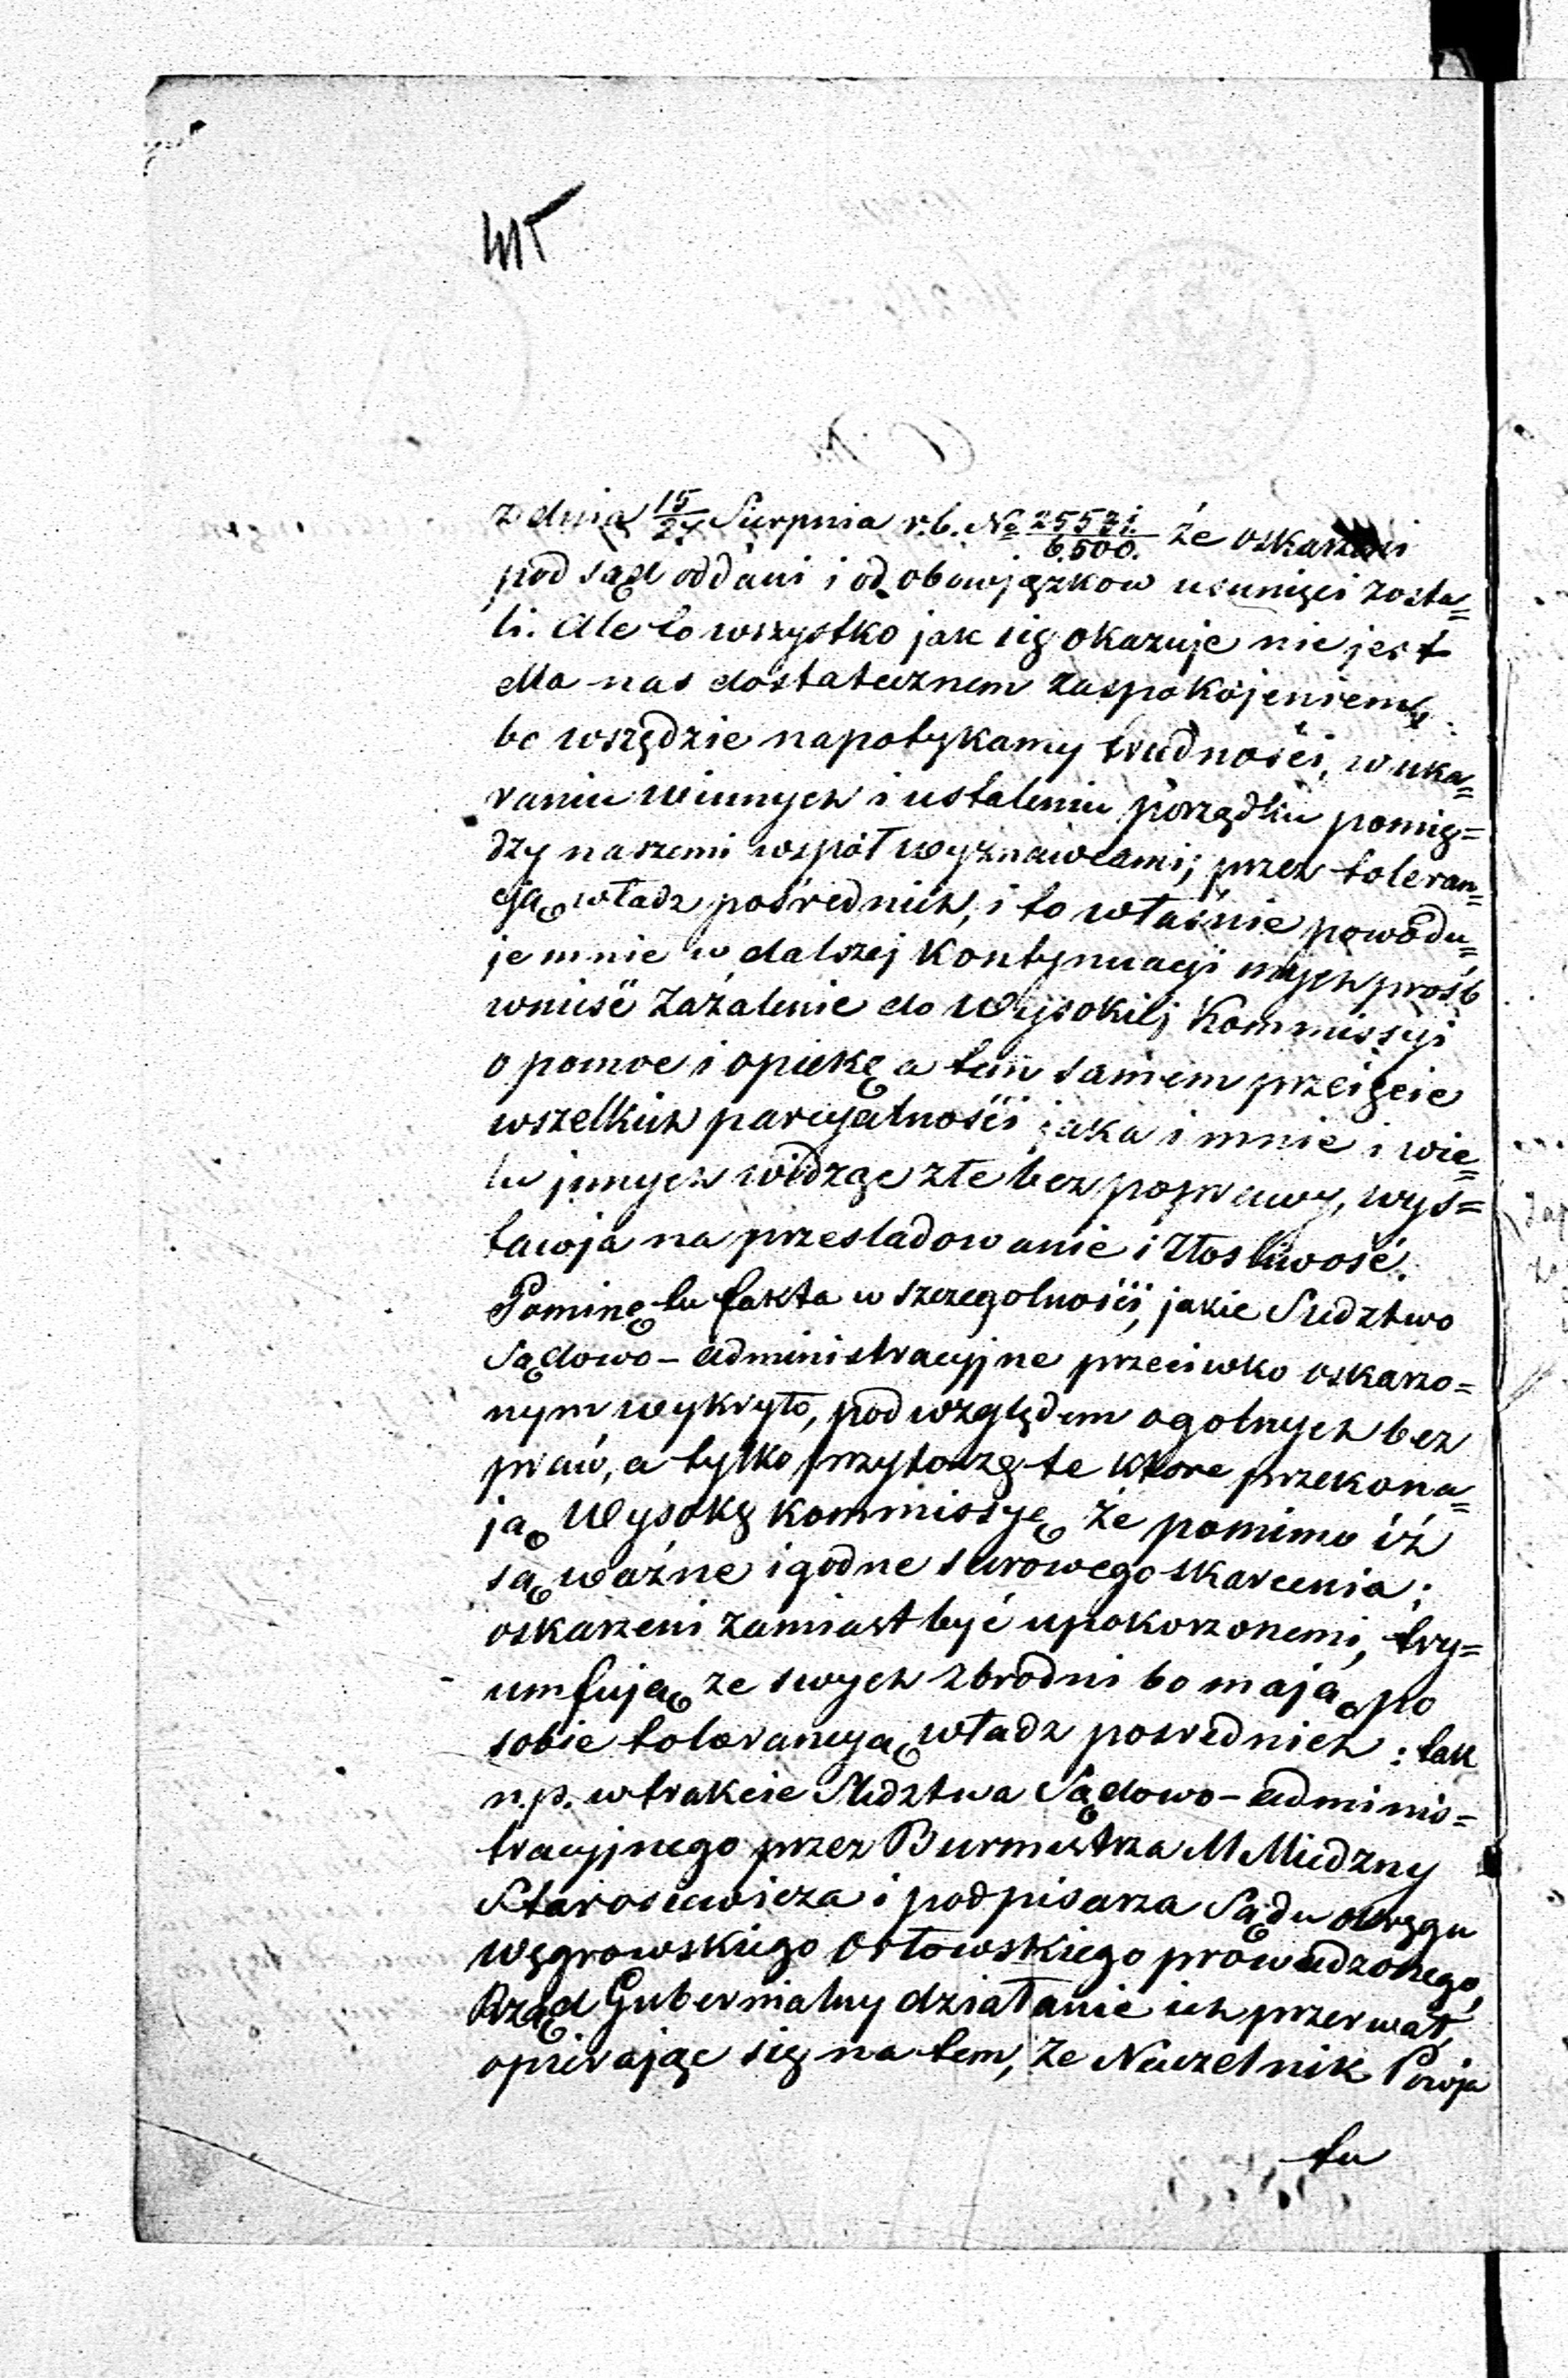 z dnia 15/27 Sierpnia r.b. No 25571/6,500. że oskarżeni
pod sąd oddani i od obowjązkow usunięci zosta=
li. Ale to wszystko jak się okazuje nie jest
dla nas dostatecznem zaspokojeniem,
bo wszędzie napotykamy trudności, w uka=
raniu winnych i ustaleniu porządku pomię=
dzy naszemi współwyznawcami; przez toleran=
cją władz pośrednich, i to właśnie powodu=
je mnie w dalszej kontynuacji mych prośb
wnieść zażalenie do Wysokiej Kommissyi
o pomoc i opiekę a tem samem przecięcie
wszelkich parcyalności jaka i mnie i wie=
lu jnnych widząc złe bez poprawy, wys=
tawja na przesladowanie i złosliwość.
Pominę tu fakta w szczegolności, jakie Sledztwo
Sądowo-administracyjne przeciwko oskarzo=
nym wykryło, pod względem ogolnych bez
praw, a tylko przytoczę te ktore przekona=
ją Wysoką Kommissyę że pomimo iż
są ważne i godne surowego skarcenia;
oskarzeni zamiast być upokorzonemi, try=
umfują ze swych zbrodni bo mają po
sobie tolerancyą władz posrednich: tak
n.p. w trakcie Sledztwa Sądowo-adminis=
tracyjnego przez Burmistrza M Miedzny
Starosciewicza i podpisarza Sądu okręgu
węgrowskiego Orłowskiego prowadzonego,
Rząd Gubernialny działanie ich przerwał,
opierając się na tem, że Naczelnik Powja
tu